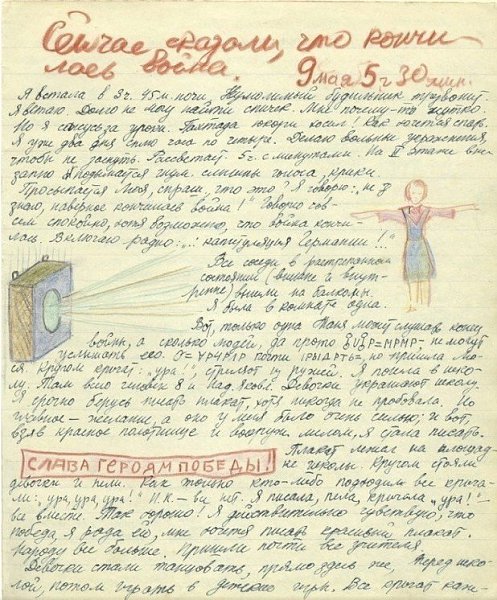 Сейчас сказали, что кончи-
лась война.
9 мая 5 ч 30 мин.
Я встала в 3 ч. 45 м. ночи. Неумолимый будильник трезвонит.
Я встаю. Долго не могу найти спичек. Мне почему-то жутко.
Но я сажусь за уроки. Полтора юкори косил! Как хочется спать.
Я уже два дня сплю часа по четыре. Делаю вольные упражнения,
чтобы не заснуть. Рассветает 5 ч. с минутами. На II этаже вне-
запно поднимается шум. слышны голоса, крики.
Просыпается Люся, спраш, что это? Я говорю: „не
знаю, наверное кончилась война!" Говорю сов-
сем спокойно, хотя возможно, что война кончи-
лась. Включаю радио: „..: капитуляция Германии!.."
Все соседи в растрепанном
состоянии (внешне и внут-
ренне) вышли на балконы.
Я была в комнате одна.
Вот, только одна Таня может слушать конец
войны, а сколько людей, да просто не могут
услышать его. почти но пришла Лю-
ся. Кругом кричат: „ура!", стреляют из ружей. Я пошла в шко-
лу. Там было человек 8 и Над. Яковл. Девочки украшают школу.
Я срочно берусь писать плакат, хотя никогда не пробовала. Но
главное - желание, а оно у меня было очень сильно; и вот,
взяв красное полотнище и вооруж. мелом, я стала писать.
СЛАВА ГЕРОЯМ ПОБЕДЫ!
Плакат лежал на площад-
ке школы. Кругом стояли
девочки и пели. Как только кто-либо подходил все крича-
ли: „ура, ура, ура!" И.К. - Я писала, пела, кричала „ура!" -
все вместе. Так хорошо! Я действительно чувствую, что
победа, я рада ей, мне хочется писать красивый плакат.
Народу все больше. Пришли почти все учителя.
Девочки стали танцовать, прямо здесь же, перед шко-
лой, потом играть в детские игры. Все кричат